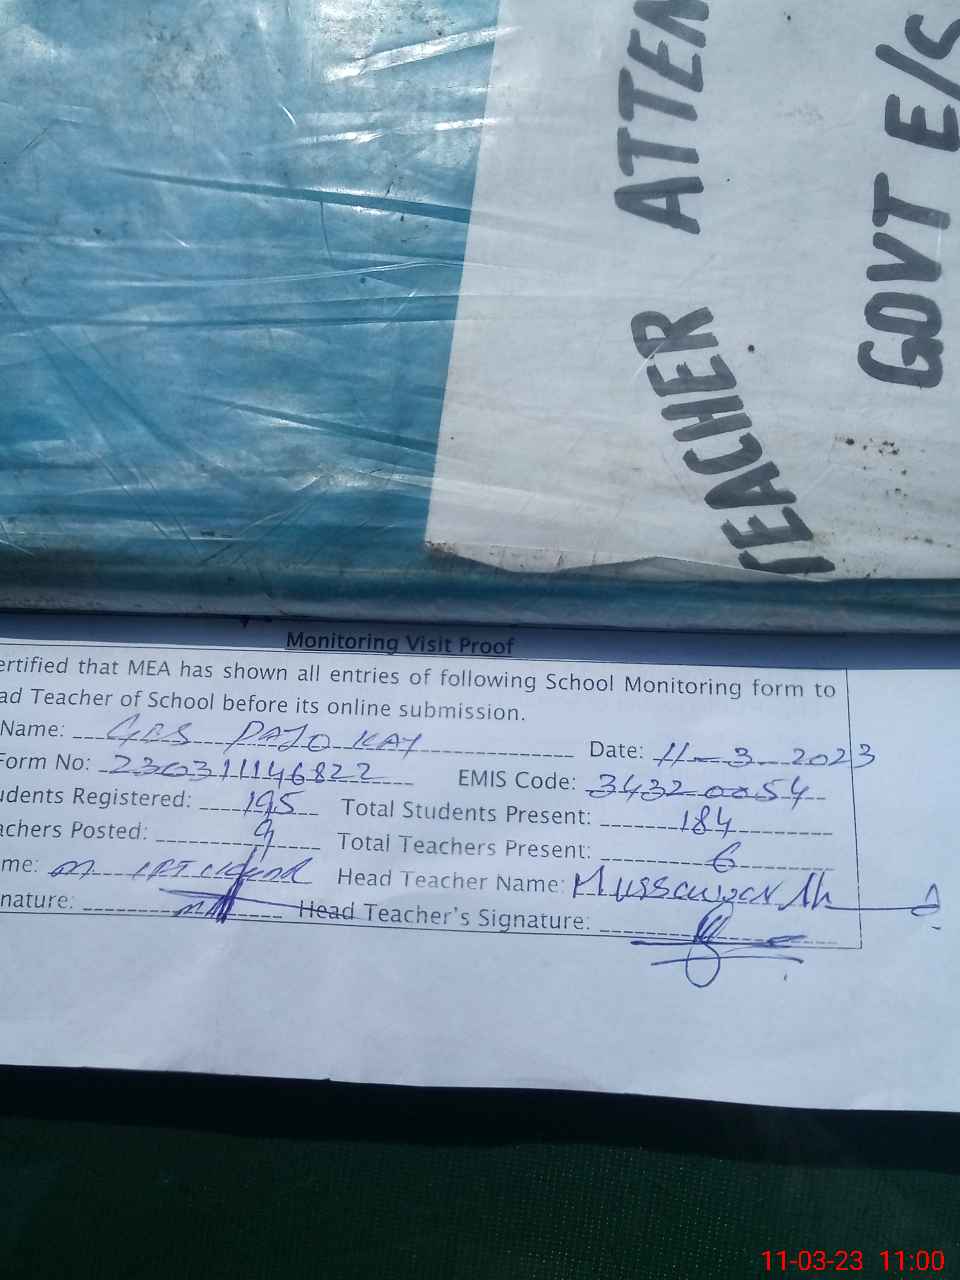 TEACHER ATTEN
GOVT E/S
Monitoring Visit Proof
ertified that MEA has shown all entries of following School Monitoring form to
ad Teacher of School before its online submission.
Name: GES DAJO KAY Date: 11-3-2023
Form No: 230311146822 EMIS Code: 34320054
udents Registered: 195 Total Students Present: 184
achers Posted: 9 Total Teachers Present: 6
me: M Head Teacher Name:
nature: Head Teacher's Signature:
11-03-23 11:00